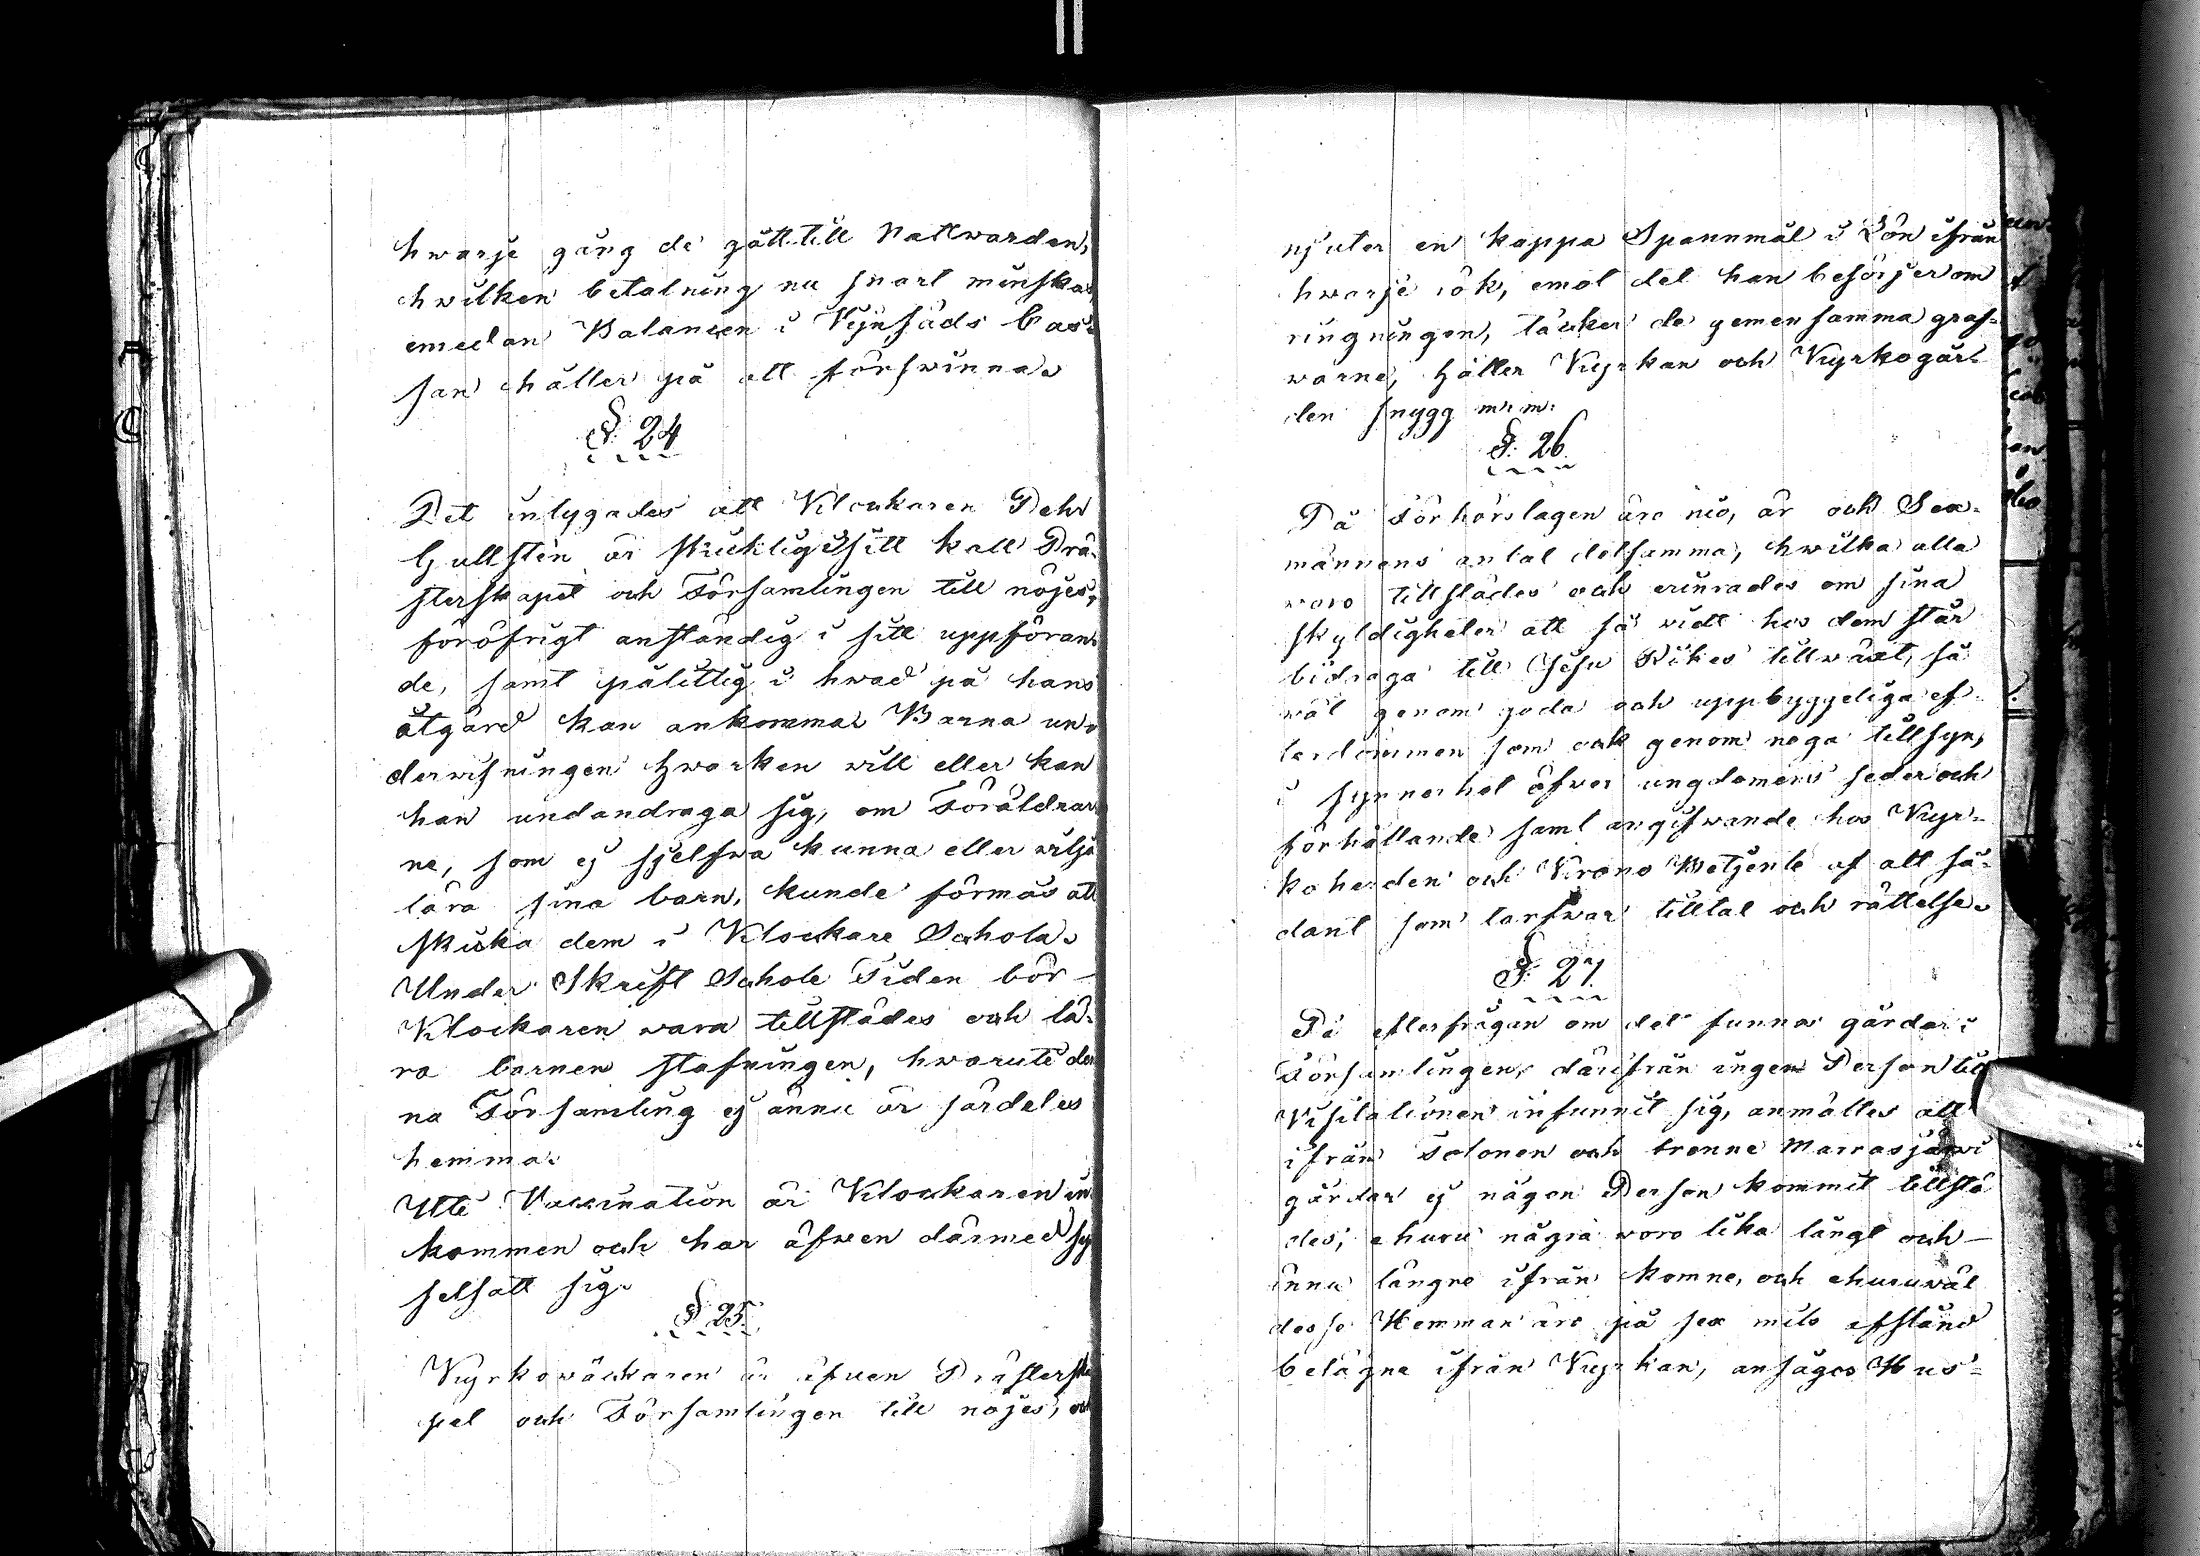 hwarje gång de gått till Nattwarden,
hwilken betalning nu snart minskas
emedan Balancen i Wijnsäds Cas=
san håller på att förswinna.
§. 24
Det intygades att Klockaren Pehr
Gullstén är skicklig i sitt kall Prä-
sterskapet och Församlingen till nöjes,
föröfrigt anständig i sitt uppföran-
de, samt pålitlig i hwad på hans
åtgärd kan ankomma. Barna un-
derwisningen hwarken will eller kan
han undandraga sig, om Föräldrar
ne, som ej sjelfwa kunna eller wilja
lära sina barn, kunde förmås att
skicka dem i Klockare Schola.
Under Skrift Schole Tiden bör
Klockaren wara tillstädes och lä-
ra barnen stafningen, hwaruti den
na Församling ej ännu är särdeles
hemma.
Uti Vaccination är Klockaren in
kommen och har äfwen därmed sys
selsatt sig.
§ 25.
Kyrkowäcktaren är äfven Prästerska
pet och Församlingen till nöjes, och
njuter en kappa Spannmål i Lön ifrån
hwarje rök, emot det han besörjer om
ringningen, täcker de gemensamma graf-
warne, håller Kyrkan och Kyrkogår-
den snygg m. m.
§. 26.
På Förhörslagen äro nio, är och Sex-
männens antal detsamma, hwilka alla
woro tillstädes och erinrades om sina
skyldigheter att så widt hos dem står
bidraga till Jesu Rikes tillwäxt, så
wäl genom goda och uppbyggeliga ef-
terdömmen som ock genom noga tillsyn,
i synnerhet öfwer ungdomens seder och
förhållande samt angifwande hos Kyr-
koherden och Krono Betjente af allt så-
dant som tarfwar tilltal och rättelse.
§. 27.
På efterfrågan om det funnos gårdar i
Församlingen, därifrån ingen Person till
Visitationen infunnit sig, anmältes att
ifrån Tolonen och trenne Marrasjärwi
gårdar ej någon Person kommit tillstä
des, ehuru några woro lika långt och
ännu längre ifrån komne, och ehuruwäl
desse Hemman äro på sex mils afstånd
belägne ifrån Kyrkan, ansågos Hus-